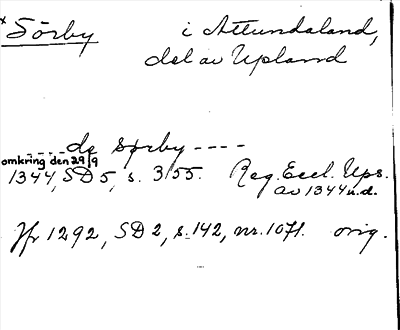 x Sörby i Attundaland,
del av Upland
- - - - de sørby - - - -
omkring den 29/9
1344, SD 5, s. 3155. Reg. Eccl. Ups.
av 1344 n.d.
Jfr 1292, SD 2, s. 142, nr. 1071. orig.